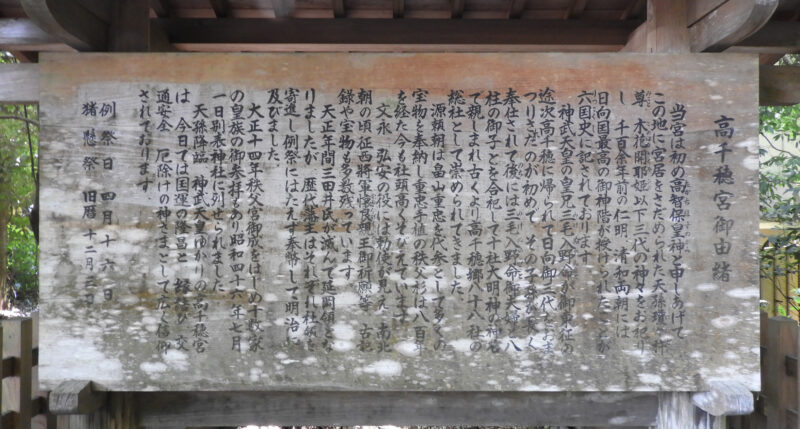 高千穂宮御由緒
当宮は初め高智保皇神と申しあげて
この地に宮居をさだめられた天孫瓊々杵
尊 木花開耶姫以下三代の神々をお祀り
し 千百余年前の仁明 清和両朝には
日向国最高の御神階が授けられたことが
六国史に記されております
神武天皇の皇兄三毛入野命が御東征の
途次高千穂に帰られて日向御三代をおま
つりさたのが初めで その子孫が長く
奉仕されて後には三毛入野命御夫婦と八
柱の御子とを合祀して十社大明神の神宮
で親しまれ古くより高千穂郷八十八社の
総社として崇められてきました
源頼朝は畠山重忠を代参として多くの
宝物を奉納し重忠手植の秩父杉は八百年
を経た今も社頭高くそびえています
文永 弘安の役には勅使が見え 南北
朝の頃征西将軍懐良親王御祈願等 古記
録や宝物も多数残っています
天正年間三田井氏が滅んで延岡領とな
りましたが 歴代藩主はそれぞれ社殿を
寄進し例祭にはたえず奉幣して明治に
及びました
大正十四年秩父宮御成をはじめ十数家
の皇族の御参拝もあり昭和四十六年七月
一日別表神社に列せられました
天孫降臨 神武天皇ゆかりの高千穂宮
は 今日では国運の隆昌と 縁結び 交
通安全 厄除けの神さまとして広く信仰
されております
例祭日 四月十六日
猪懸祭 旧暦十二月三日